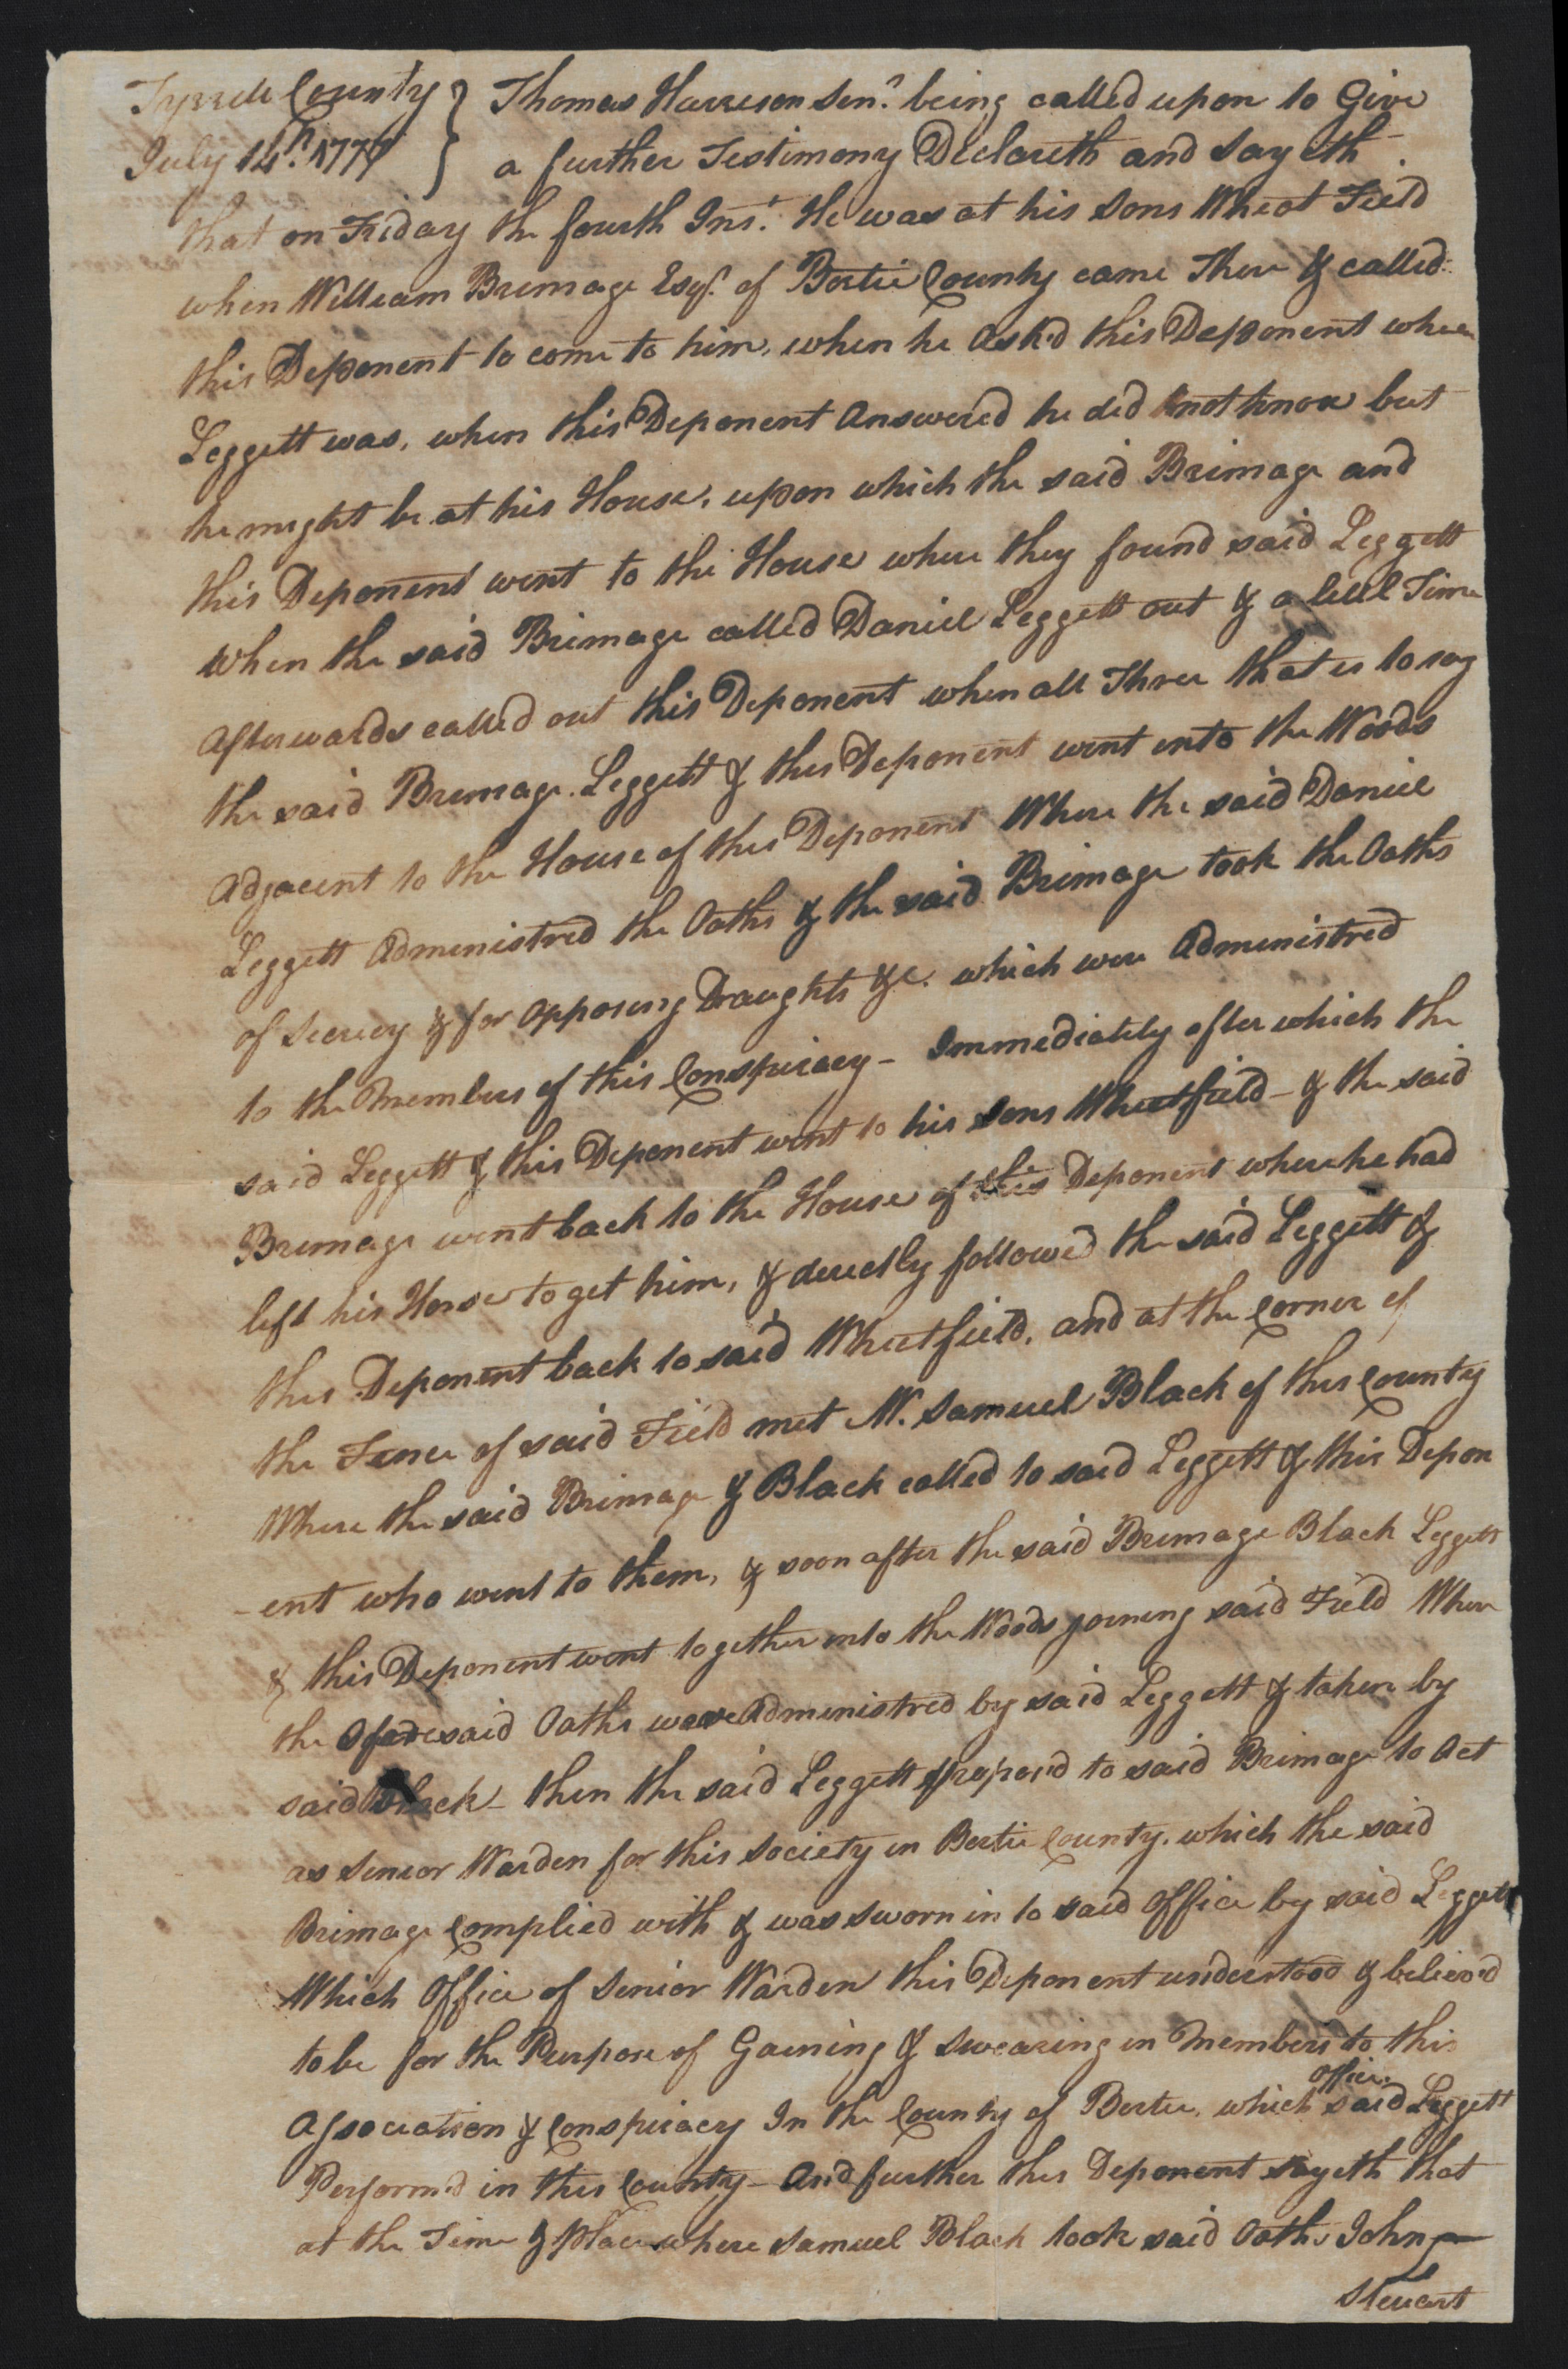 Tyrrell County } Thomas Harrison Senr. being called upon to Give
July 14th. 1777 } a further Testimony Declareth and Sayeth
that on Friday the fourth Inst. He was at his Sons Wheat Field
when William Brimage Esqr. of Bertie County came There & called
this Deponent to come to him, when he Ask'd this Deponent where
Leggett was, when this Deponent Answered he did not know but
he might be at his House, upon which the said Brimage and
this Deponent went to the House where they found said Leggett
When the said Brimage called Daniel Leggett out & a little Time
Afterwards called out this Deponent when all Three that is to say
the said Brimage Leggett & this Deponent went into the Woods
Adjacent to the House of this Deponent Where the said Daniel
Leggett Administred the Oaths & the said Brimage took the Oaths
of Secrecy & for Opposing Draughts &c. which were Administred
to the Members of this Conspiracy - Immediately after which the
said Leggett & this Deponent went to his Sons Wheatfield - & the said
Brimage went back to the House of this Deponent where he had
left his Horse to get him, & directly followed the said Leggett &
this Deponent back to said Wheatfield, and at the Corner of
the Fence of said Field met Mr. Samuel Black of this County
Where the said Brimage & Black called to said Leggett & this Depon
-ent who went to them, & soon after the said Brimage Black Leggett
& this Deponent went together into the Woods joining said Field Where
the Aforesaid Oaths were Administred by said Leggett & taken by
said Black - then the said Leggett propos'd to said Brimage to Act
as Senior Warden for this Society in Bertie County, which the said
Brimage Complied with & was sworn in to said Office by said Leggett
Which Office of Senior Warden this Deponent understood & believ'd
to be for the Purpose of Gaining & Swearing in Members to this
Association & Conspiracy In the County of Bertie, which Office said Leggett
Perform'd in this County - And further this Deponent sayeth that
at the Time & place where Samuel Black took said Oaths John
Stewart